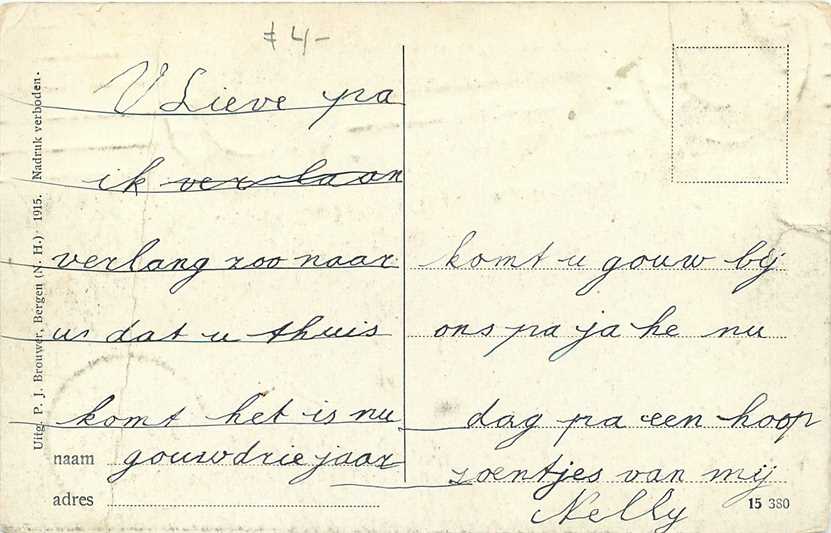 £ 4-
V Lieve pa
ik verlaon
verlang zoo naar
u dat u thuis
komt het is nu
gouw drie jaar
komt u gouw bij
ons pa ja he nu
dag pa een hoop
zoentjes van mij
Nelly
naam
adres
15 380
Uitg. P. J. Brouwer, Bergen (N. H.) 1915. Nadruk verboden.